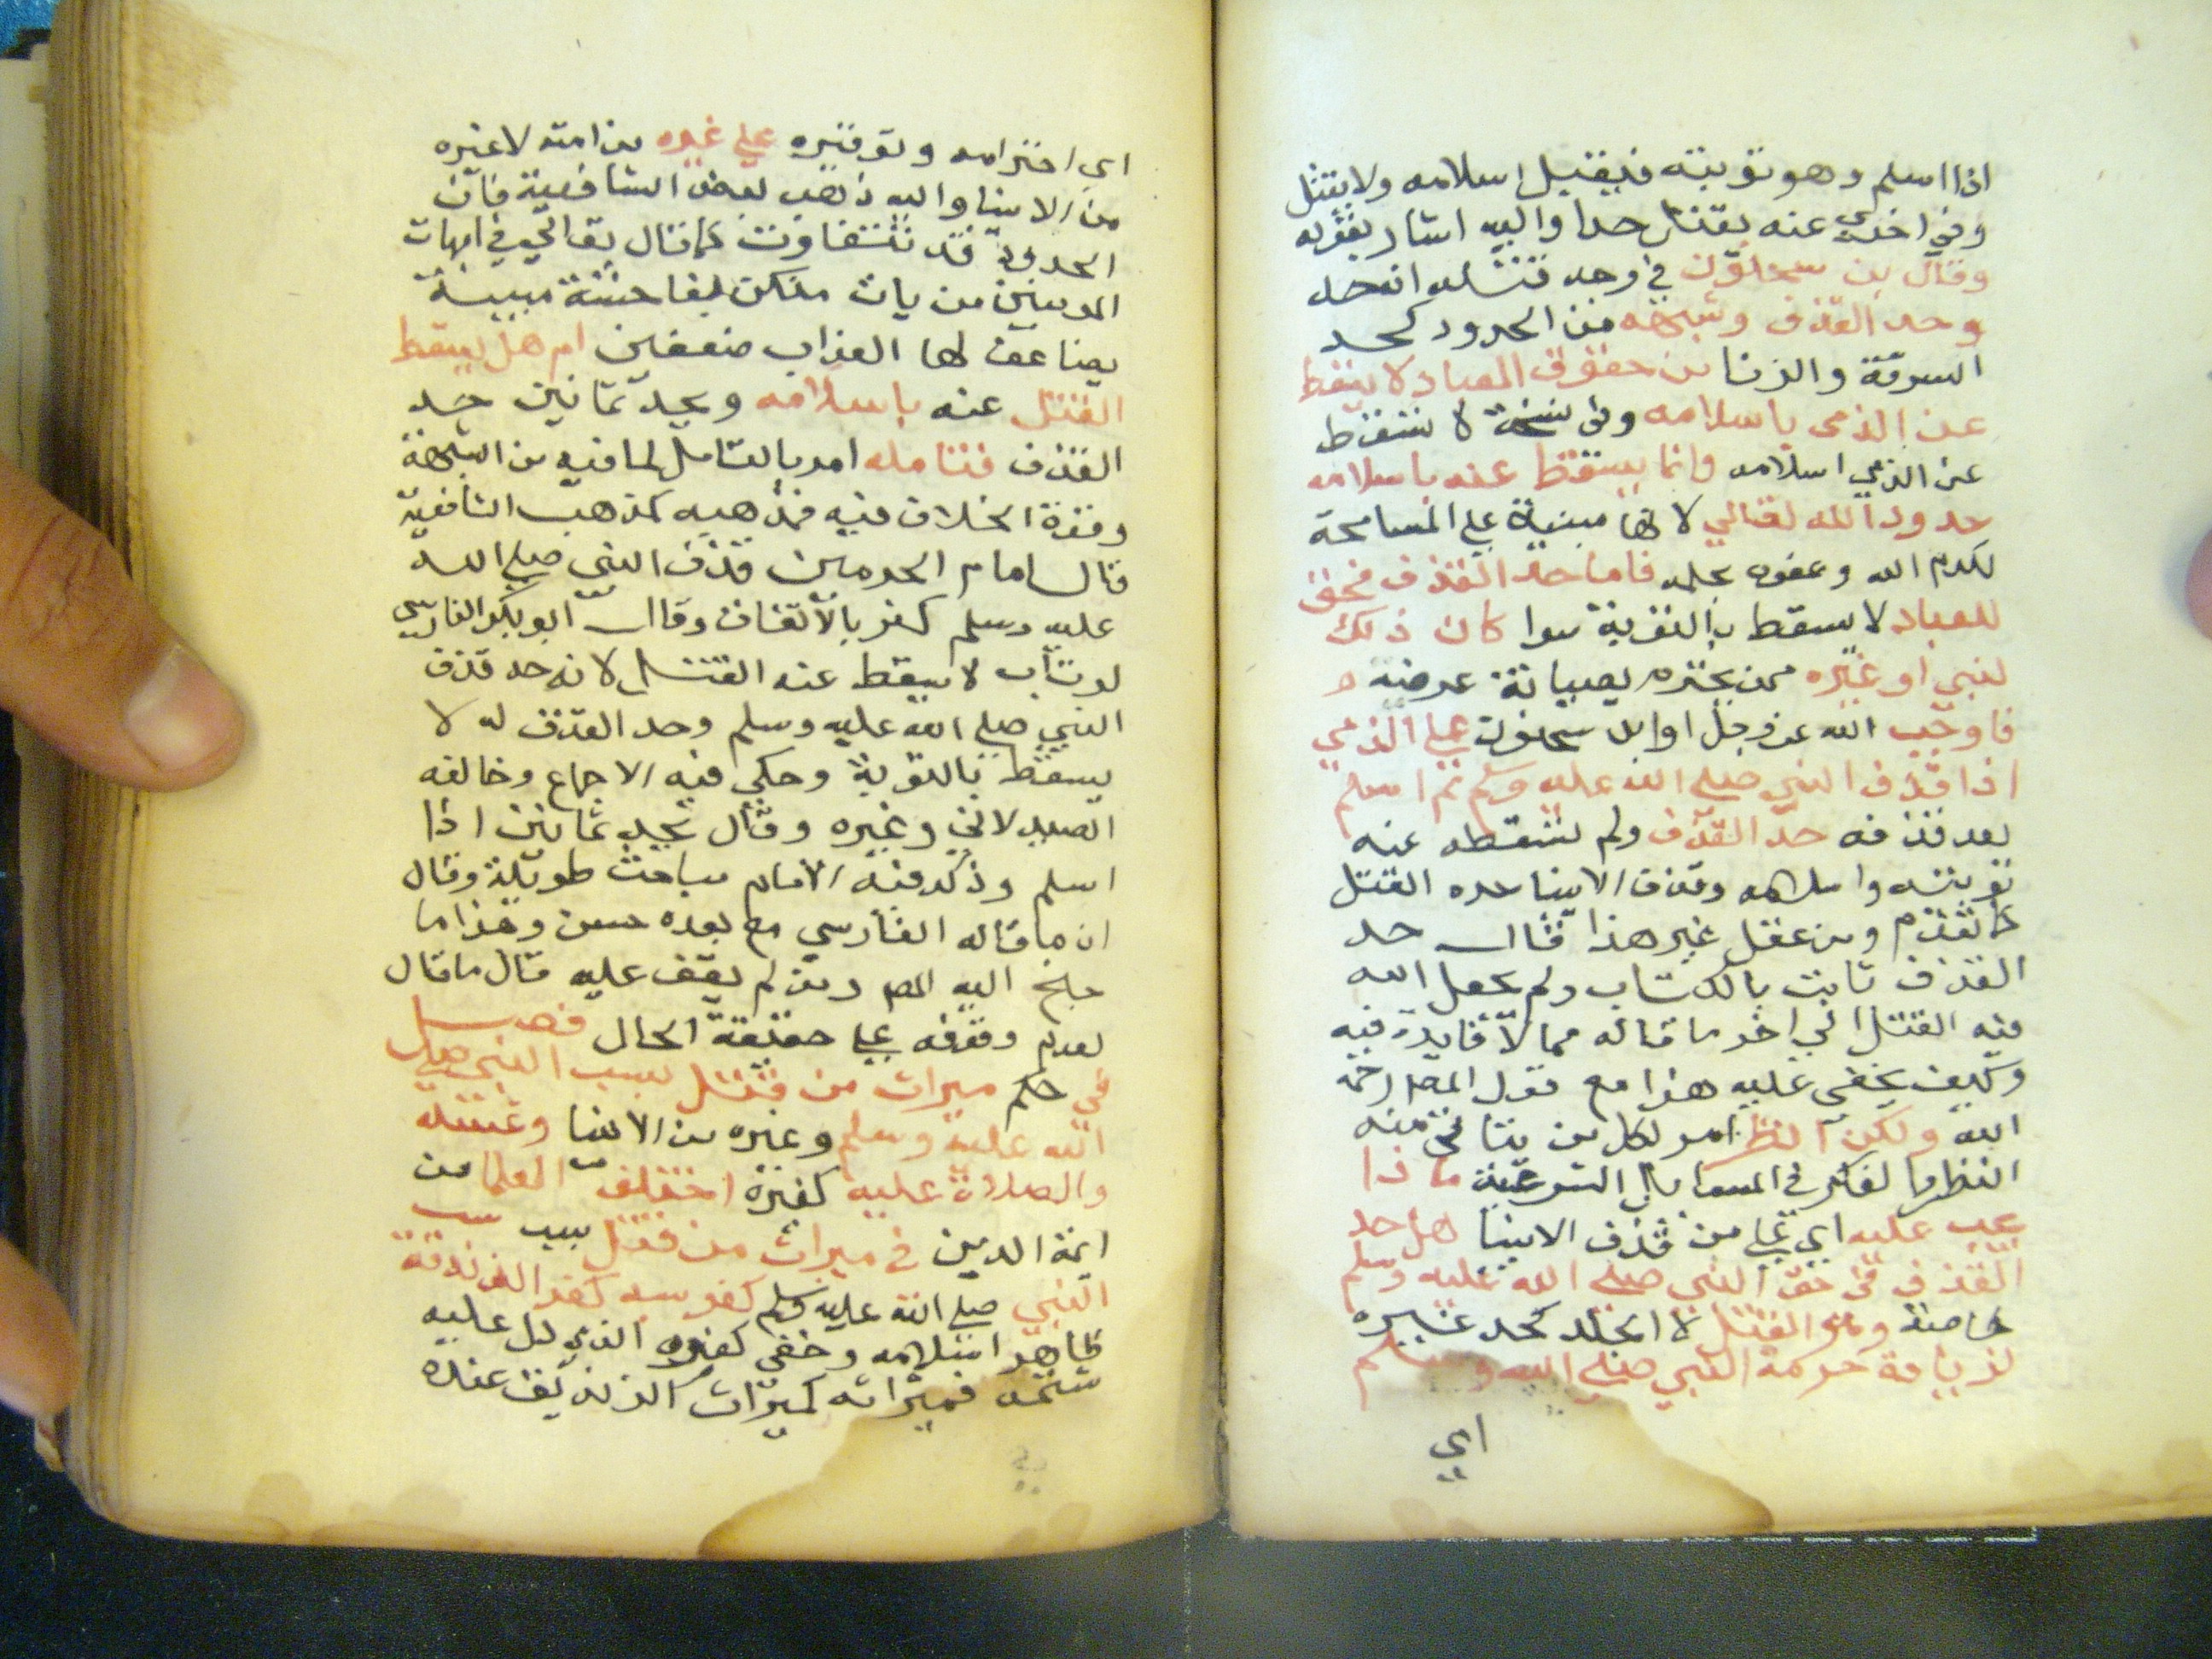 اذا اسلم وهو توبته فيقبل اسلامه ولا يقتل
وفي اخرى عنه يقتل حدا واليه اشار بقوله
وقال بن سحنون في وجه قتله انه حد
وحد القذف وشبهه من الحدود كحد
السرقة والزنا من حقوق العباد لا يسقط
عن الذمى باسلامه وفى نسخة لا تسقط
عن الذمي اسلامه وانما يسقط عنه باسلامه
حدود الله تعالي لانها مبنية علي المسامحة
لكرم الله وعفوه بحلمه فاما حد القذف فحق
للعباد لا يسقط بالتوبة سوا كان ذلك
لنبي او غيره ممن يحترم لصيانة عرضه
فاوجب الله عز وجل او ابن سحنون علي الذمي
اذا قذف النبي صلي الله عليه وسلم ثم اسلم
بعد قذفه حد القذف ولم تسقطه عنه
توبته واسلامه وقذف الانبيا حده القتل
كما تقدم ومن غفل غير هذا قال حد
القذف ثابت بالكتاب ولم يجعل الله
فيه القتل الي اخر ما قاله مما لا فايدة فيه
وكيف يخفى عليه هذا مع قول المص رحمه
الله ولكن انظر امر لكل من يتاتى منه
النظر والفكر في المسايل الشرعية ماذا
يجب عليه اي علي من قذف الانبيا هل حد
القذف في حق النبي صلي الله عليه وسلم
خاصة وهو القتل لا الجلد كحد غيره
لزيادة حرمة النبي صلي الله وسلم
اي
اي احترامه وتوقيره علي غيره من امته لا غيره
من الانبيا واليه ذهب بعض الشافعية فان
الحدود قد تتفاوت كما قال تعالي في امهات
المومنين من يات منكن بفاحشة مبينة
يضاعف لها العذاب ضعفين ام هل يسقط
القتل عنه باسلامه ويحد ثمانين حد
القذف فتامله امر بالتامل لما فيه من الشبهة
وقوة الخلاف فيه فمذهبه كمذهب الشافعية
قال امام الحرمين قذف النبي صلي الله
عليه وسلم كفر بالاتفاق وقال ابو بكر الفارسي
لو تاب لا يسقط عنه القتل لانه حد قذف
النبي صلي الله عليه وسلم وحد القذف له لا
يسقط بالتوبة وحكي فيه الاجماع وخالفه
الصيدلاني وغيره وقال يحد ثمانين اذا
اسلم وذكر فيه الامام مباحث طويلة وقال
ان ما قاله الفارسي مع بعده حسن وهذا ما
جنح اليه المص ومن لم يقف عليه قال ما قال
لعدم وقوفه علي حقيقة الحال فصل
في حكم ميراث من قتل بسب النبي صلي
الله عليه وسلم وغيره من الانبيا وغسله
والصلاة عليه كغيره اختلف العلما من
ايمة الدين في ميراث من قتل بسبب سب
النبي صلي الله عليه وسلم كفر سبه كفر الزندقة
ظاهر اسلامه وخفى كفره الذي دل عليه
شتمه فميراثه كميراث الزنديق عنده